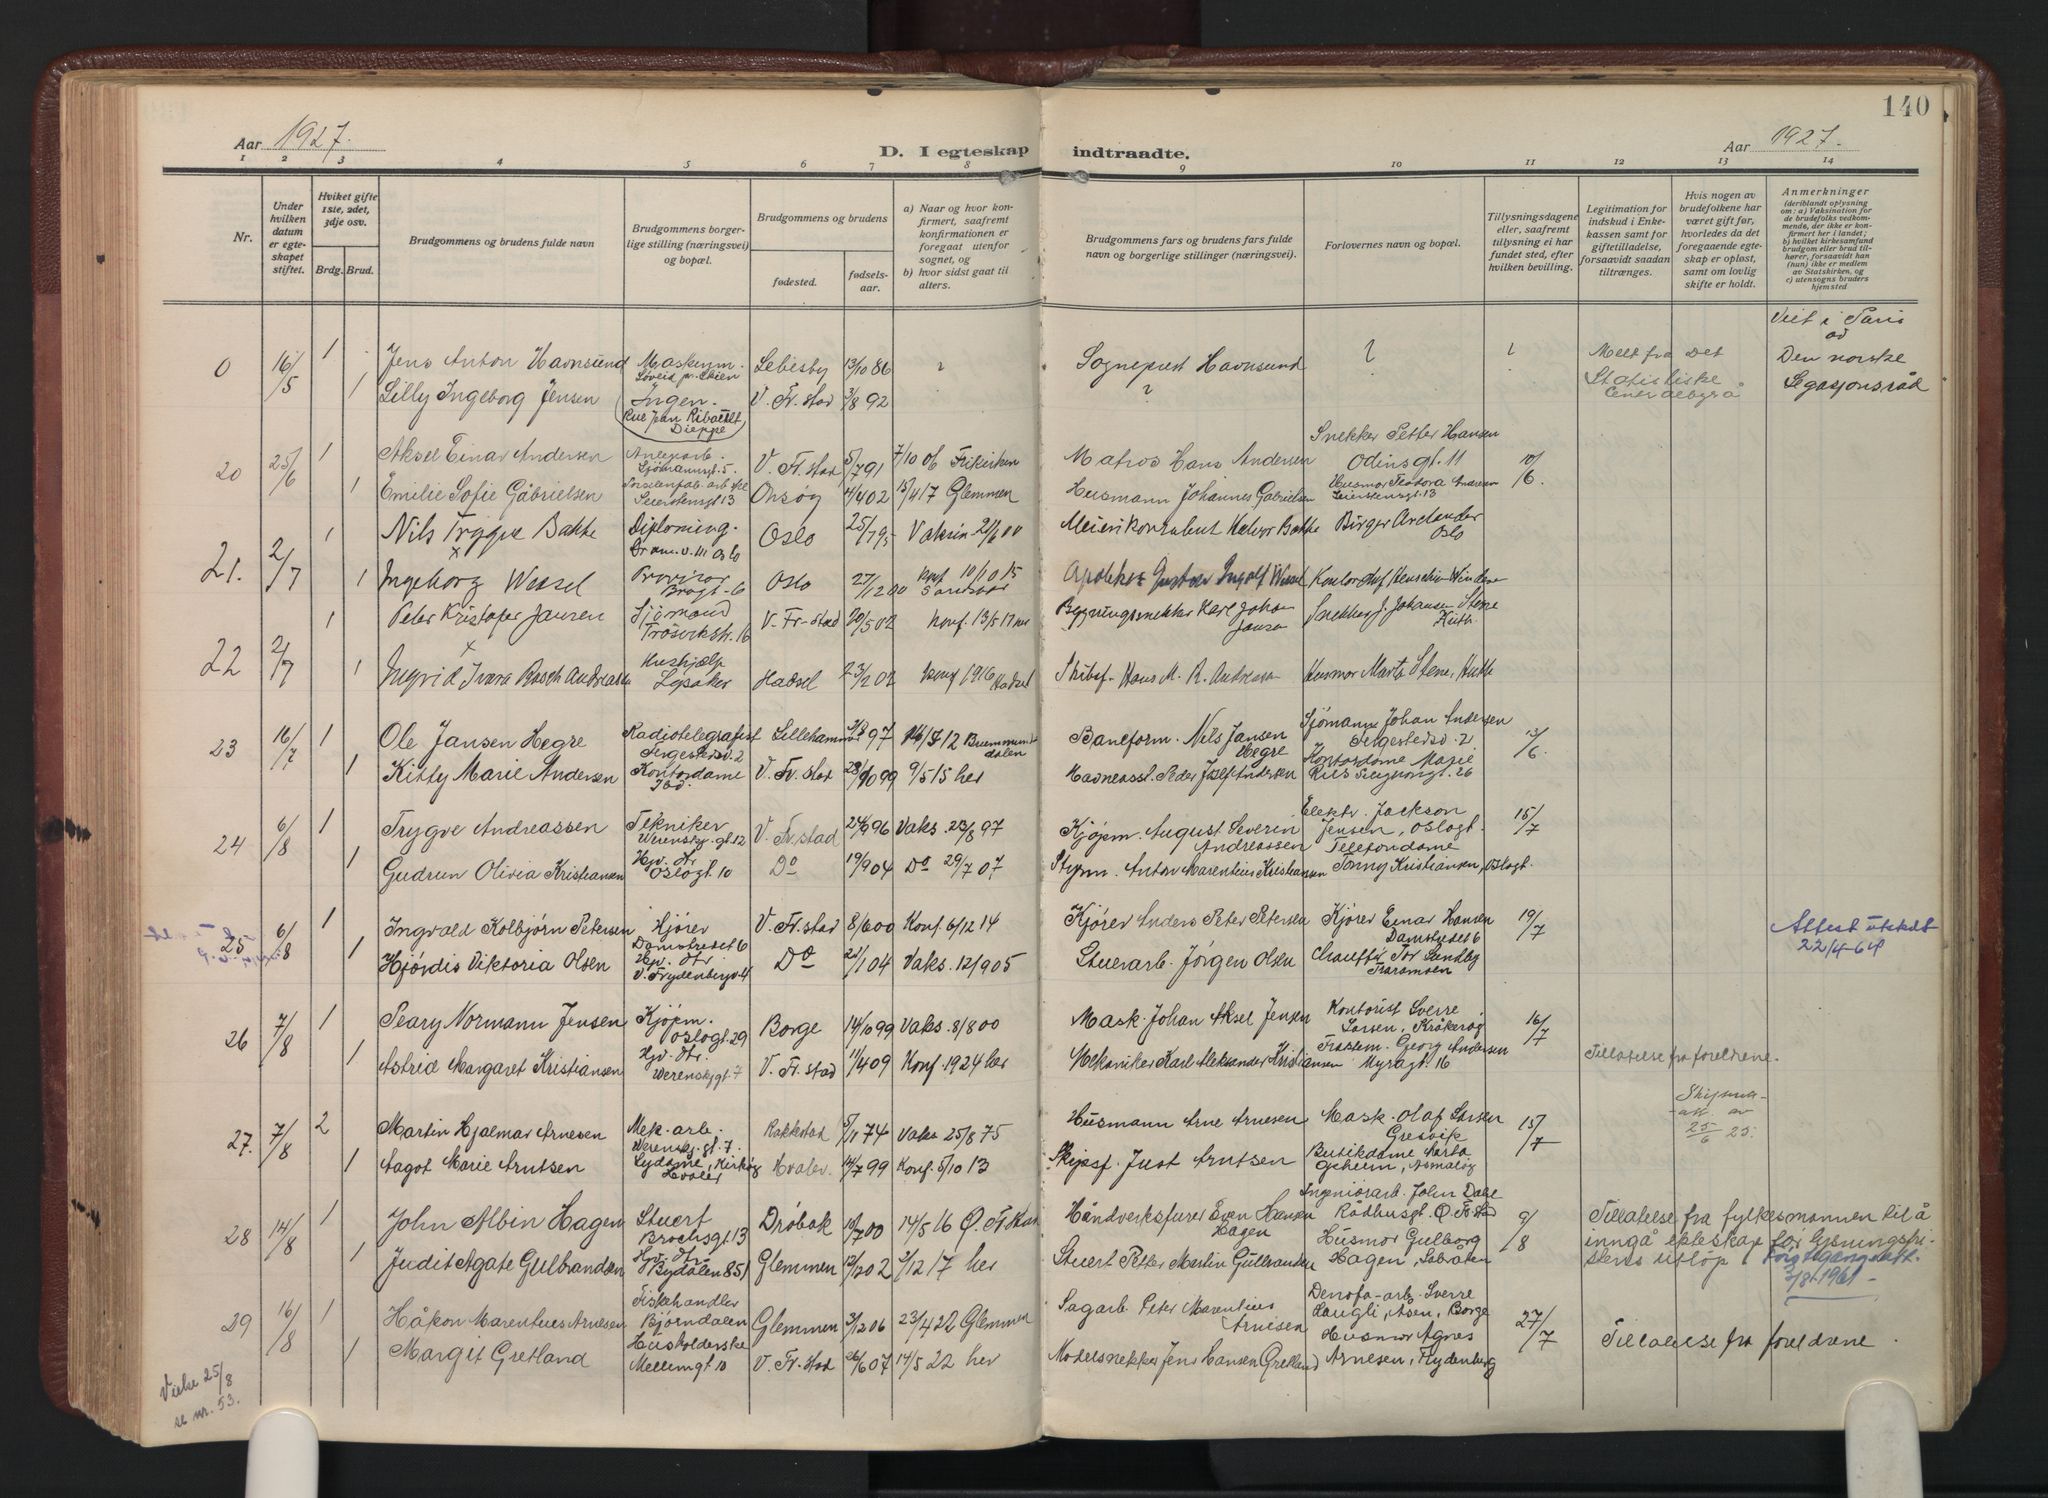 140
Aar 1927.
D. I egteskap indtraadte.
Aar 1927.
1 2 3 4 5 6 7 8 9 10 11 12 13 14
Nr.
Under hvilken datum er egteskapet stiftet.
Hviket gifte 1ste, 2det, 3dje osv.
Brdg. Brud.
Brudgommens og brudens fulde navn
Brudgommens borgerlige stilling (næringsvei) og bopæl.
Brudgommens og brudens
fødested.
fødselsaar.
a) Naar og hvor konfirmert, saafremt konfirmationen er foregaat utenfor sognet, og
b) hvor sidst gaat til alters.
Brudgommens fars og brudens fars fulde navn og borgerlige stillinger (næringsvei).
Forlovernes navn og bopæl.
Tillysningsdagene eller, saafremt tillysning ei har fundet sted, efter hvilken bevilling.
Legitimation for indskud i Enkekassen samt for giftetilladelse, forsaavidt saadan tiltrænges.
Hvis nogen av brudefolkene har været gift før, hvorledes da det foregaaende egteskap er opløst, samt om lovlig skifte er holdt.
Anmerkninger (deriblandt oplysning om: a) Vaksination for de brudefolks vedkommende, der ikke er konfirmert her i landet; b) hvilket kirkesamfund brudgom eller brud tilhører, forsaavidt han (hun) ikke er medlem av Statskirken, og c) utensogns bruders hjemsted
0 16/5 1 Jens Anton Havnsund Lebesby 13/10 86 Sogneprest Havnsund Melt fra Det Viet i Paris
1 Lilly Ingeborg Jensen Ingen. V. Fr. stad 3/8 92 Statistiske Den norske
Dieppe Legasjonsråd
20 25/6 1 Aksel Einar Andersen Sjömannsgt. 5. V. Fr. stad 5/7 91 7/10 06 Frikirken Matros Hans Andersen Snekker Petter Hansen Odinsgt. 11 10/6.
1 Emilie Sofie Gabrielsen Seierstensgt 13 Onsøy 4/4 02 15/4 17 Glemmen Husmann Johannes Gabrielsen Husmor Teodora Andersen Seierstensgt. 13
21. 2/7 1 Nils Trygve Bakke Diploming. Oslo 25/7 95 Vaksin 21/6 00 Birger Oslo
1 Ingeborg Wessel Provisor Oslo 27/12 00 Konf 10/10 15 Apoteker Gustav Ingolf Wessel
22 2/7 1 Peter Kristofer Jansen Sjömand Trosvikstr. 16 V. Fr-stad 20/5 02 Konf. 13/5 17 her Bygningssnekker Karl Johan Jansen Snekker J. Johansen Stene
1 Ingrid Ivara Andreassen Hushjælp Hadsel 23/2 02 Konf 1916 Hadsel Skibsf. Hans M. R. Andreassen Husmor Marta Stene
23 16/7 1 Ole Jansen Hegre Radiotelegrafist Lillehammer 97 Brummunddalen Baneform. Nils Jansen Hegre Sjömann Johan Andersen 13/6.
1 Kitty Marie Andersen Kontordame Ibd. V. Fr. stad 28/10 99 9/5 15 her Havneasst. Peder Josef Andersen Kontordame Marie
24 6/8 1 Trygve Andreassen Tekniker Werenskj. gt. 12 V. Fr. stad 24/9 96 Vaks. 23/8 97 Kjøpm. August Severin Andreassen Elektr. Jackson Jensen, Oslogt. 15/7
1 Gudrun Olivia Kristiansen Hv. dtr Oslogt. 10 Do 19/9 04 Do 29/7 07 Styrm. Anton Marentius Kristiansen Telefondame Tonny Kristiansen, Oslogt.
25 6/8 1 Ingvald Kolbjørn Petersen Kjører Damstredet 6 V. Fr. stad 8/6 00 Konf. 6/12 14 Kjører Anders Peter Petersen Kjører Einar Hansen Damstredet 6 19/7 Attest utstedt
1 Hjørdis Viktoria Olsen Hv. dtr V. Frydenbergv. 4 Do 1 04 Vaks. 12/9 05 Stuerarb. Jörgen Olsen Chauffør Tor Sandby 22/4-64
26 7/8 1 Peary Normann Jensen Kjöpm. Oslogt. 29 Borge 14/10 99 Vaks. 8/8 00 Mask. Johan Aksel Jensen Kontorist Sverre Larsen, Kråkerøy 16/7
1 Astrid Margaret Kristiansen Hv. dtr. Werenskjgt. 7 V. Fr. stad 11/4 09 Konf. 1924 her Mekaniker Karl Aleksander Kristiansen Georg Andersen Myragt. 16 Tillatelse fra foreldrene.
27. 7/8 2 Martin Hjalmar Arnesen Mek. arb. Werenskj. gt. 7. Rakkestad 5/1 74 Vaks 25/8 75 Husmann Arne Arnesen Mask. Olaf Larsen Gresvik 15/7 25/6 25.
1 Aagot Marie Arntsen Sydame, Kirkøy Hvaler Hvaler. 14/7 99 Konf. 5/10 13 Skipsf. Just Arntsen Butikdame Marta Geheim, Asmaløy
28 14/8 1 John Albin Hagen Stuert Brochsgt. 13 Drøbak 10/7 00 14/5 16 Ø. Fr. stad Håndverksfurer Even Hansen Hagen Ingeniørarb. John Dahl Rådhusgt. Ø. Fr. stad 9/8 Tillatelse fra fylkesmannen til å
1 Judit Agate Gulbrandsen Hv. dtr Bydalen 851 Glemmen 13/12 02 3/12 17 her Stuert Petter Martin Gulbrandsen Husmor Gulborg Hagen, inngå ekteskap før lysningsfristens utløp
3/8-1961
29 16/8 1 Håkon Marentius Arnesen Fiskehandler Bjørndalen Glemmen 3/12 06 23/4 22 Glemmen Sagarb. Peter Marentius Arnesen Denofa-arb. Sverre Haugli, Åsen, Borge 27/7
1 Margit Gretland Husholderske Mellemgt. 10 V. Fr. stad 26/6 07 14/5 22 her Modelsnekker Jens Hansen Gretland Husmor Agnes Arnesen, Frydenberg Tillatelse fra foreldrene.
Vielse 25/8
se nr. 53.